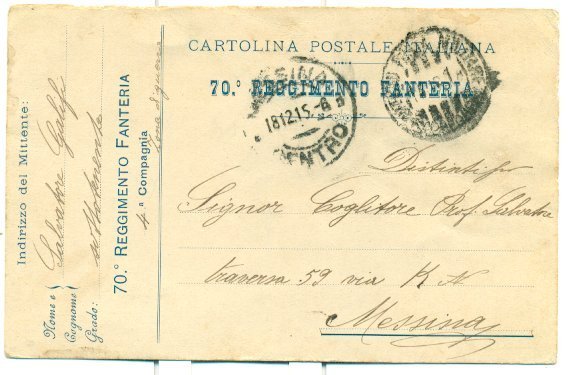 CARTOLINA POSTALE ITALIANA
70.° REGGIMENTO FANTERIA
18 12 15 - 8
CENTRO
Signor Coglitore Prof. Salvatore
traversa 59 via K N
Messina
Indirizzo del Mittente:
Nome e Cognome Salvatore
Grado: sottotenente
70.° REGGIMENTO FANTERIA
4ª Compagnia
Zona di guerra